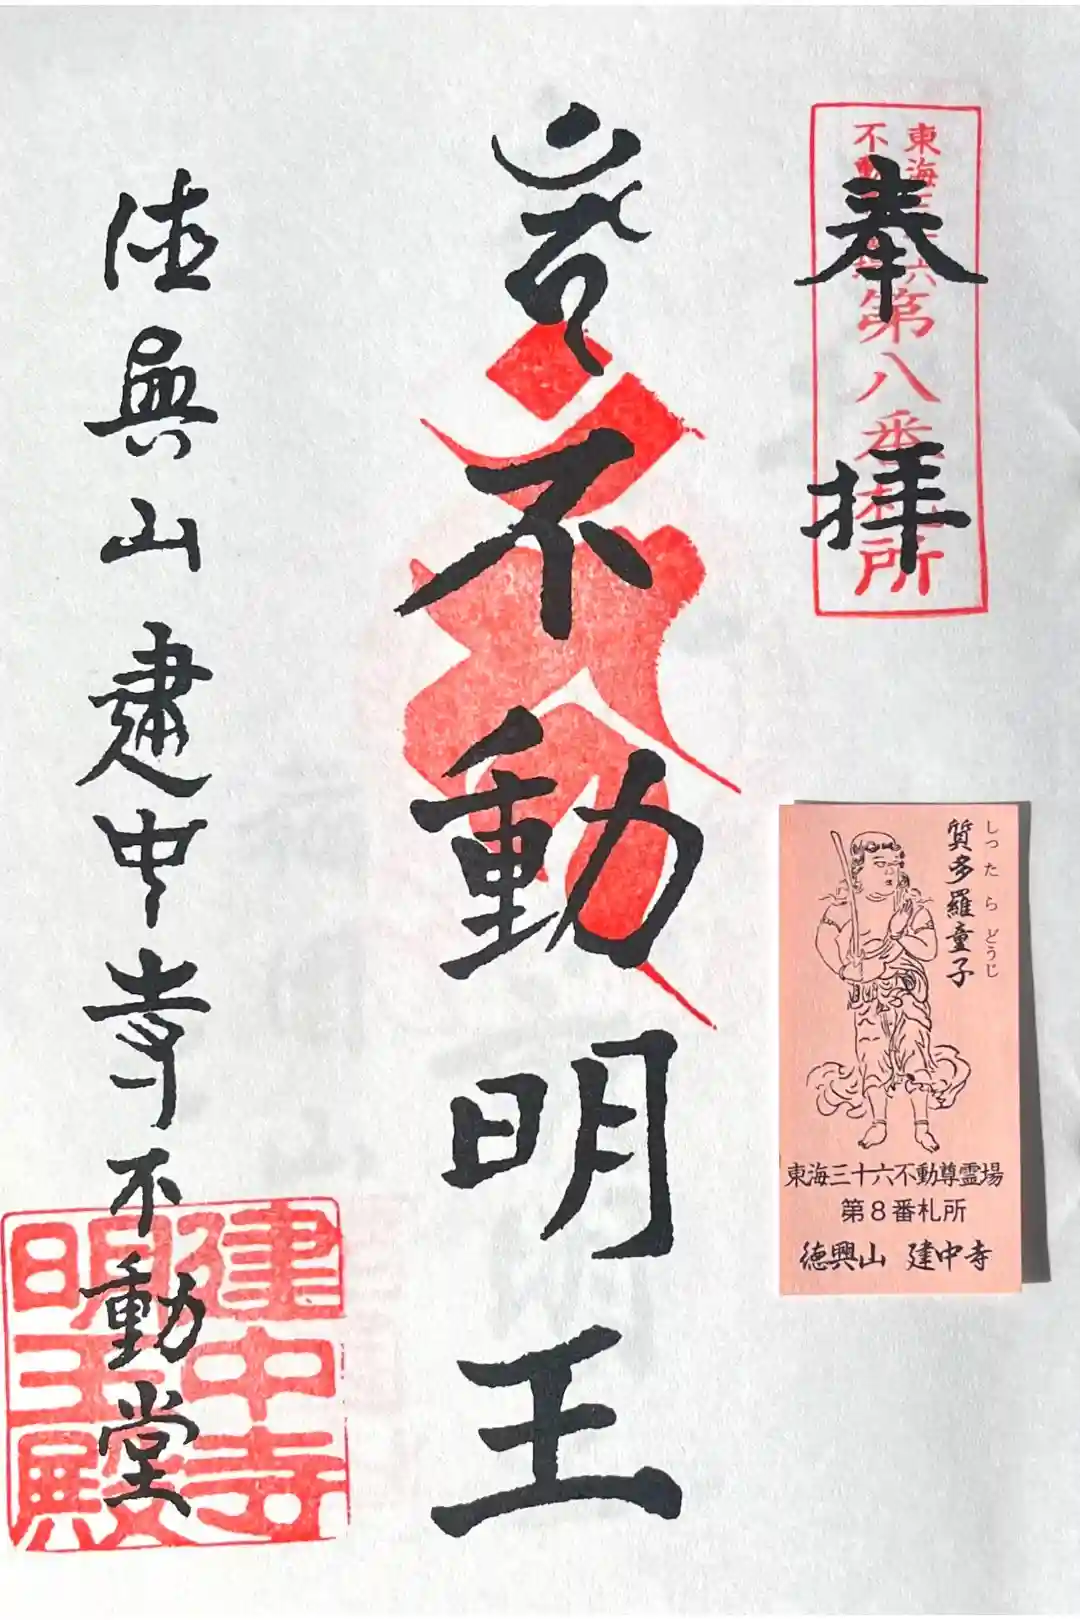 奉拝
東海三十六
不動尊霊場
第八番札所
不動明王
徳興山建中寺不動堂
建中寺
明王殿
質多羅童子
しったらどうじ
東海三十六不動尊霊場
第8番札所
徳興山 建中寺